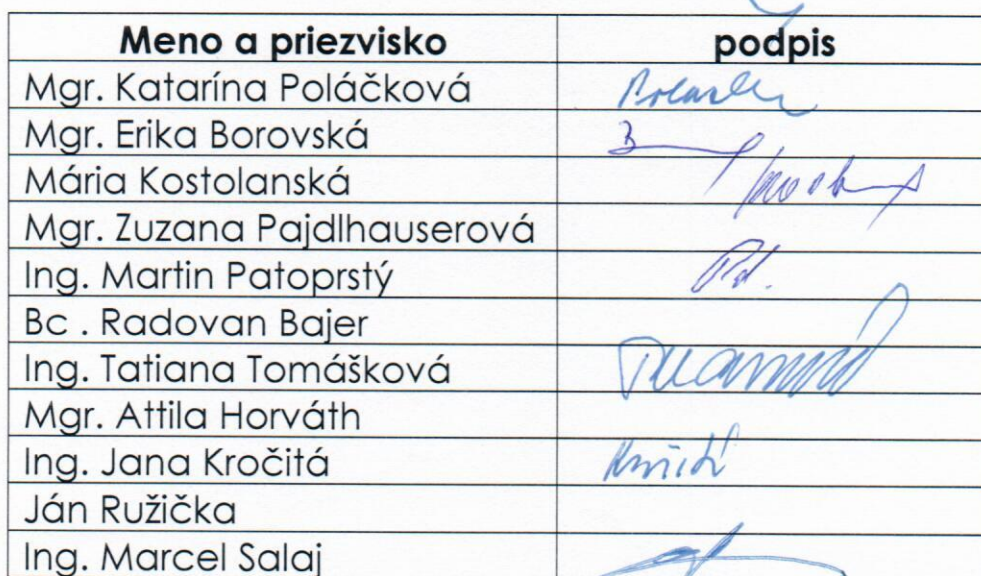 Meno a priezvisko podpis
Mgr. Katarína Poláčková
Mgr. Erika Borovská
Mária Kostolanská
Mgr. Zuzana Pajdlhauserová
Ing. Martin Patoprstý
Bc . Radovan Bajer
Ing. Tatiana Tomášková
Mgr. Attila Horváth
Ing. Jana Kročitá
Ján Ružička
Ing. Marcel Salaj